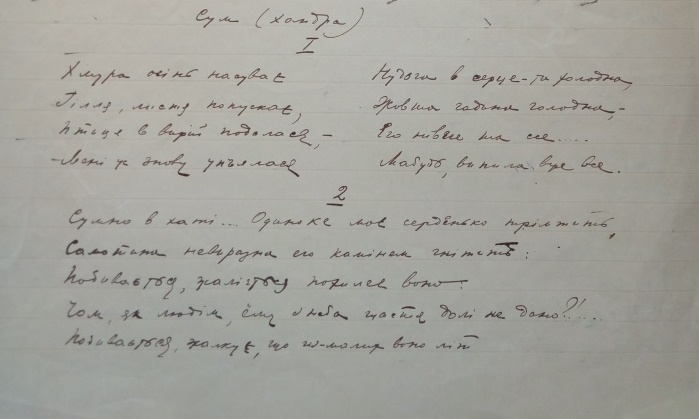 Сум (хандра)
I
Хмура осінь насуває
Гілля, листя попускає,
Птиця в вирій подалася, –
Мені ж знову упʼялася
Нудьга в серце – та холодна,
гадина голодна, –
Його ще....
Мабуть, випила вже все.
2
Сумно в хаті... Одиноке моє серденько тріпотить,
Самотина невиразна його камінем гнітить:
Побивається, жаліється похилеє воно:
Чом, як людім, йому з неба щастя долі не дано?!...
Побивається, жалкує, що из-малих воно літ